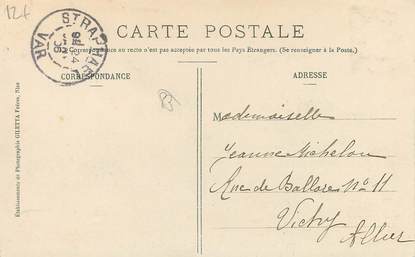 12€
CARTE POSTALE
La Correspondance au recto n'est pas acceptée par tous les Pays Étrangers. (Se renseigner à la Poste.)
CORRESPONDANCE
ADRESSE
VAR
B
Mademoiselle
Jeanne Michelon
Rue de Ballore No 11
Vichy
Allier
Établissements de Photographie GILETTA Frères, Nice